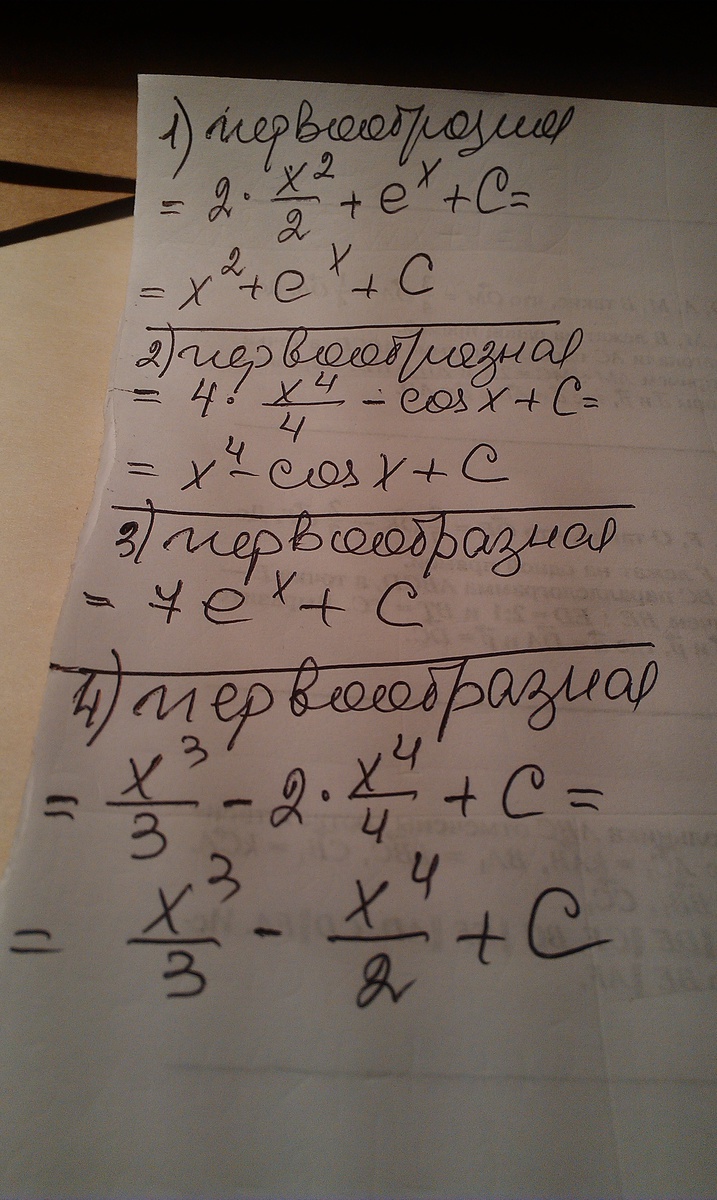 1) первообразная
= 2 · x²/2 + eˣ + C =
= x² + eˣ + C
2) первообразная
= 4 · x⁴/4 - cos x + C =
= x⁴ - cos x + C
3) первообразная
= 7eˣ + C
4) первообразная
= x³/3 - 2 · x⁴/4 + C =
= x³/3 - x⁴/2 + C